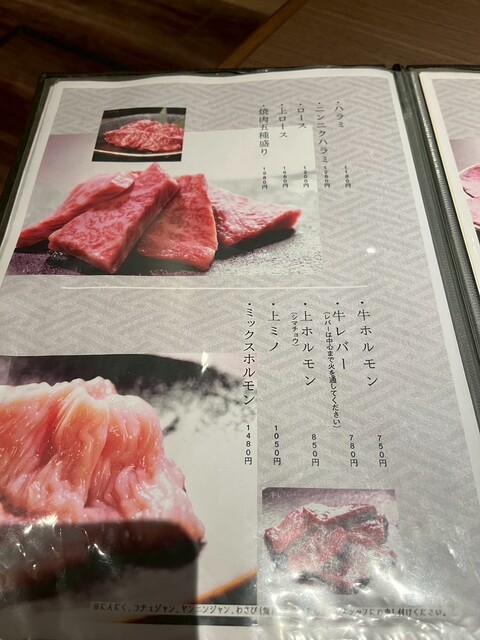 ・ハラミ 1180円
・ニンニクハラミ 1280円
・ロース 1200円
・上ロース 1680円
・焼肉五種盛り 1980円
・牛ホルモン 750円
・牛レバー 780円
(レバーは中心まで火を通してください)
・上ホルモン 850円
(シマチョウ)
・上ミノ 1050円
・ミックスホルモン 1480円
にんにく、コチュジャン、ヤンニンジャン、わさび
お申し付けください。